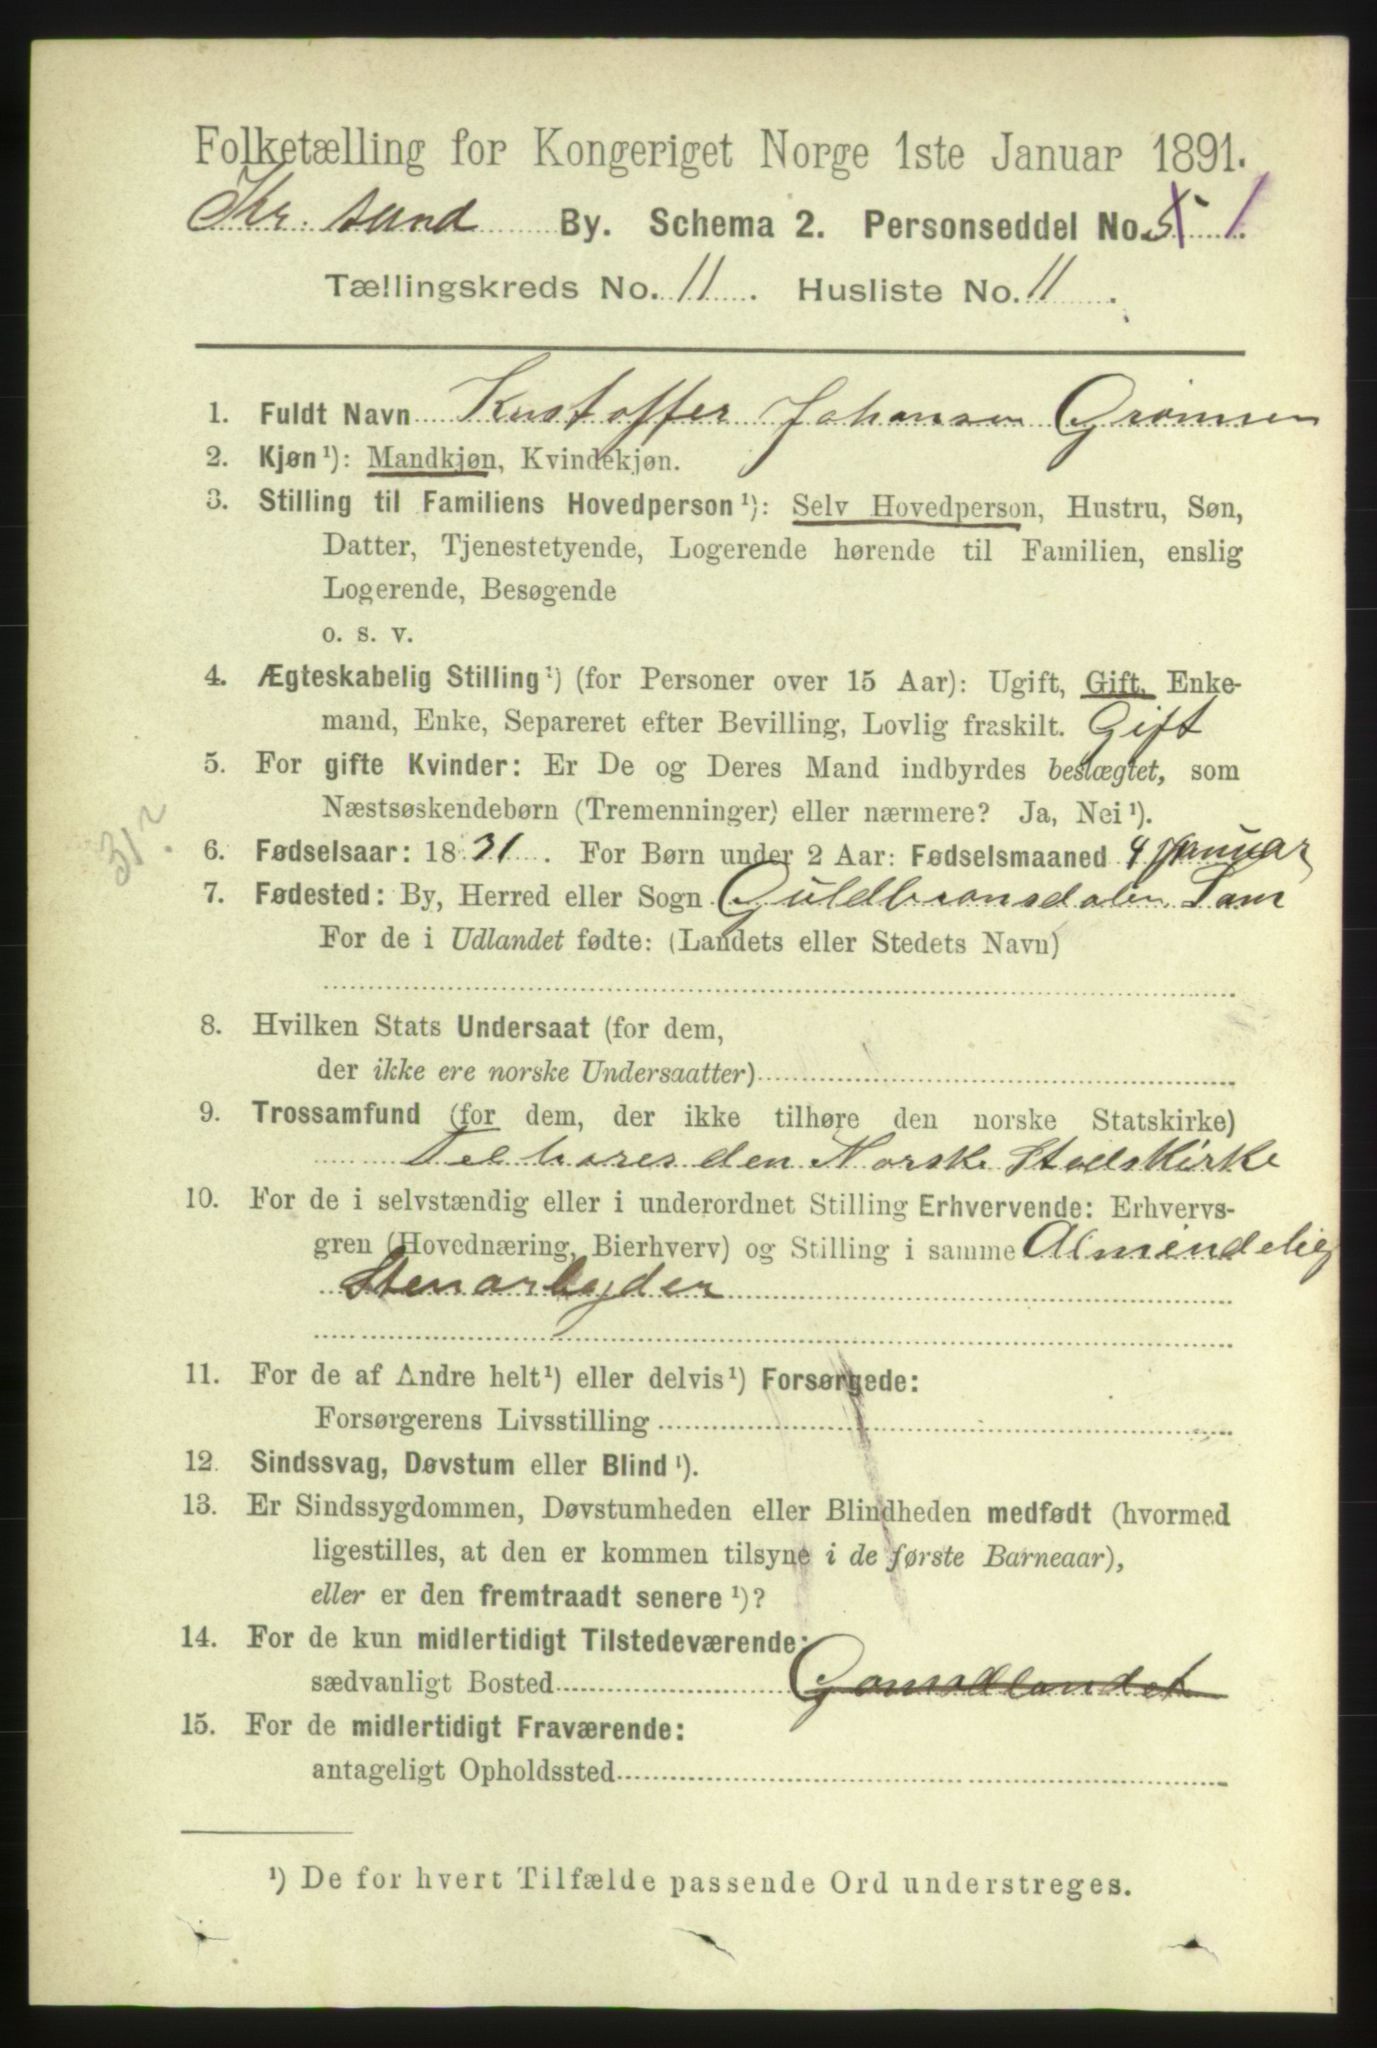 Folketælling for Kongeriget Norge 1ste Januar 1891.
Kr. sand By. Schema 2. Personseddel No. 5 1
Tællingskreds No. 11. Husliste No. 11.
1. Fuldt Navn Kristoffer Johansen
2. Kjøn¹): Mandkjøn, Kvindekjøn.
3. Stilling til Familiens Hovedperson¹): Selv Hovedperson, Hustru, Søn,
Datter, Tjenestetyende, Logerende hørende til Familien, enslig
Logerende, Besøgende
o. s. v.
4. Ægteskabelig Stilling¹) (for Personer over 15 Aar): Ugift, Gift, Enke-
mand, Enke, Separeret efter Bevilling, Lovlig fraskilt. Gift
5. For gifte Kvinder: Er De og Deres Mand indbyrdes beslægtet, som
Næstsøskendebørn (Tremenninger) eller nærmere? Ja, Nei¹).
31?
6. Fødselsaar: 1831. For Børn under 2 Aar: Fødselsmaaned 4 Januar
7. Fødested: By, Herred eller Sogn Guldbransdalen
For de i Udlandet fødte: (Landets eller Stedets Navn)
8. Hvilken Stats Undersaat (for dem,
der ikke ere norske Undersaatter)
9. Trossamfund (for dem, der ikke tilhøre den norske Statskirke)
den Norske Stadskirke
10. For de i selvstændig eller i underordnet Stilling Erhvervende: Erhvervs-
gren (Hovednæring, Bierhverv) og Stilling i samme Almindelig
Stenarbyder
11. For de af Andre helt¹) eller delvis¹) Forsørgede:
Forsørgerens Livsstilling
12. Sindssvag, Døvstum eller Blind¹).
13. Er Sindssygdommen, Døvstumheden eller Blindheden medfødt (hvormed
ligestilles, at den er kommen tilsyne i de første Barneaar),
eller er den fremtraadt senere¹)?
14. For de kun midlertidigt Tilstedeværende:
sædvanligt Bosted
15. For de midlertidigt Fraværende:
antageligt Opholdssted
¹) De for hvert Tilfælde passende Ord understreges.